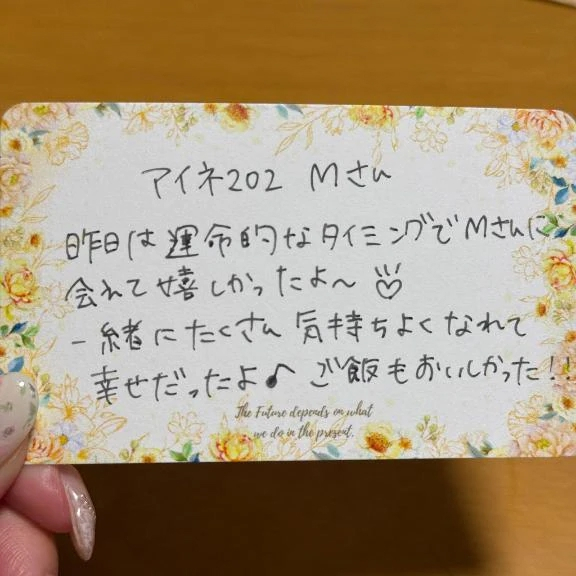 アイネ202 Mさん
昨日は運命的なタイミングでMさんに
会れて嬉しかったよ〜♡
一緒にたくさん気持ちよくなれて
幸せだったよ♪ ご飯もおいしかった!!
The Future depends on what
we do in the present.